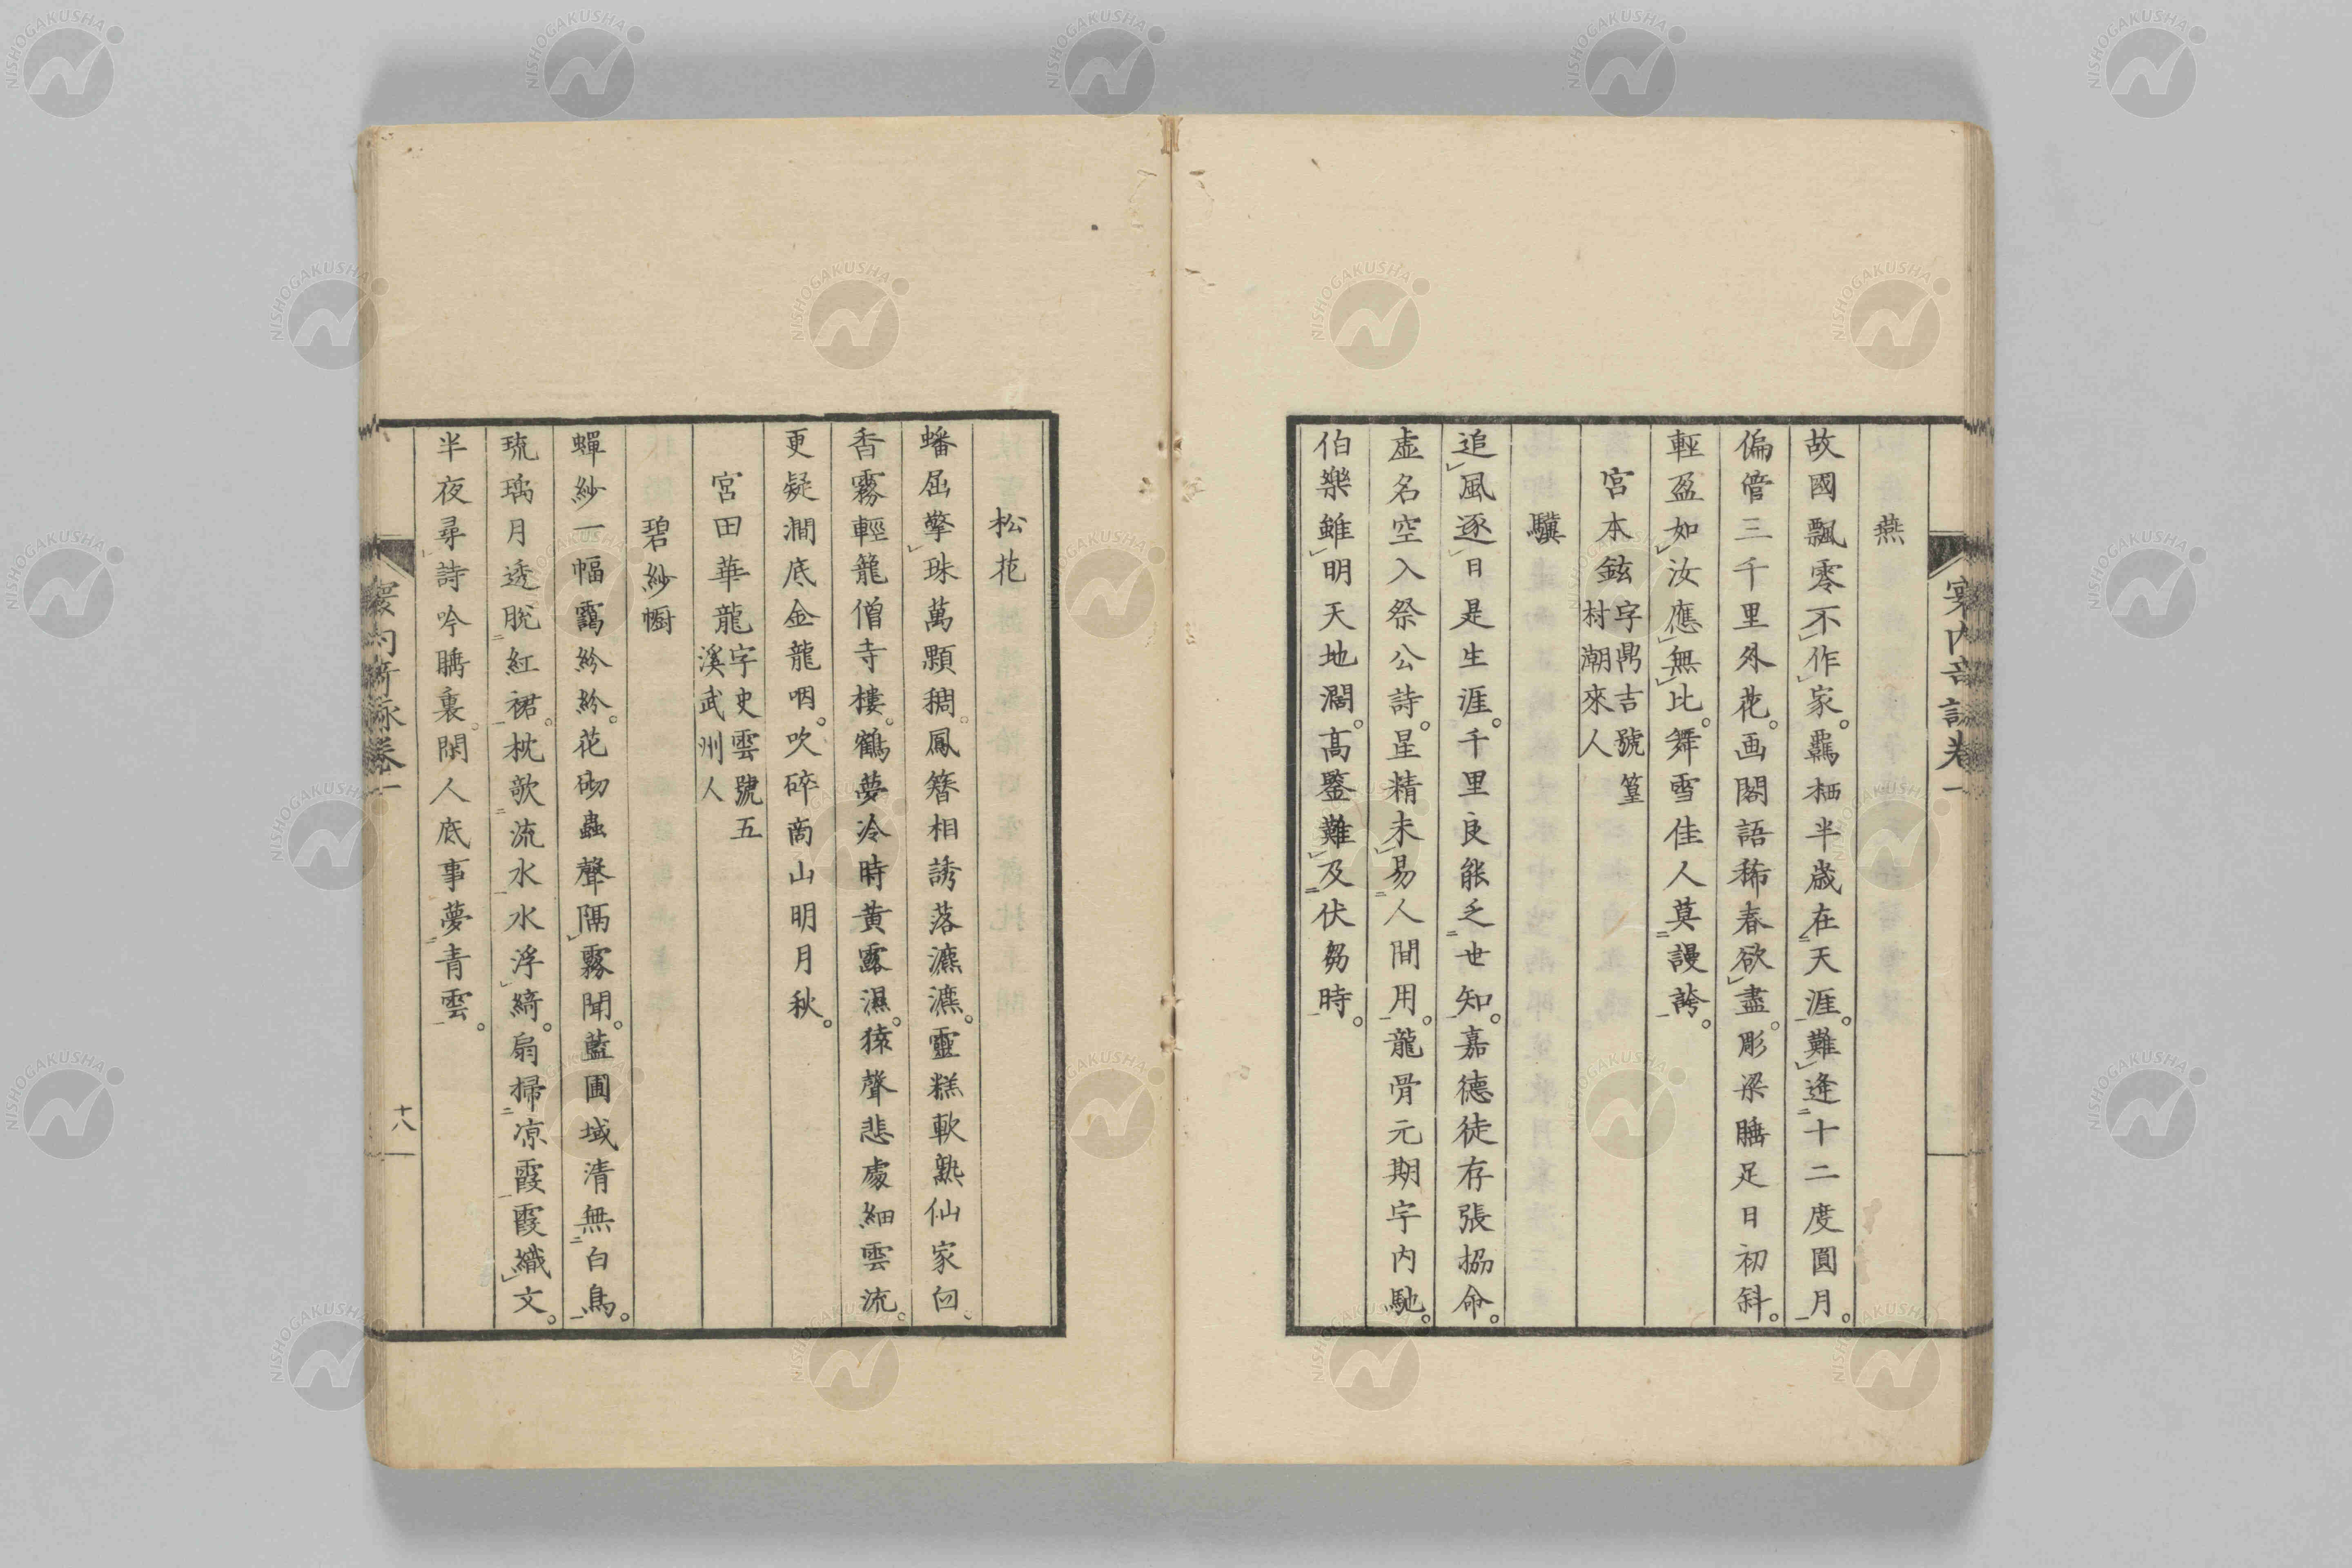 燕
故國飄零不作家。羈栖半歳在天涯。難逢十二度圓月。
偏管三千里外花。画閣語稀春欲盡。彫梁睡足日初斜。
輕盈如汝應無比。舞雪佳人莫謾誇。
宮本鉉字鼎吉號篁村潮來人
驥
追風逐日是生涯。千里良能乏世知。嘉德徒存張協命。
虛名空入祭公詩。星精未易人間用。龍骨元期宇內馳。
伯樂雖明天地濶。高鑒難及伏芻時。
松花
蟠屈擎珠萬顆稠。鳳簪相誘落瀌瀌。靈糕軟熟仙家
香霧輕籠僧寺樓。鶴夢冷時黃露濕。猿聲悲處細雲流。
更疑澗底金龍咽。吹碎商山明月秋。
宮田華龍字史雲號五溪武州人
碧紗㡡
蟬紗一幅靄紛紛。花砌蟲聲隔霧聞。藍圃域清無白鳥。
琉璃月透脫紅裙。枕欹流水水浮綺。扇掃凉霞霞織文。
半夜尋詩吟睡裏。閑人底事夢青雲。
寰內奇詠卷一
十八
NISHOGAKUSHA